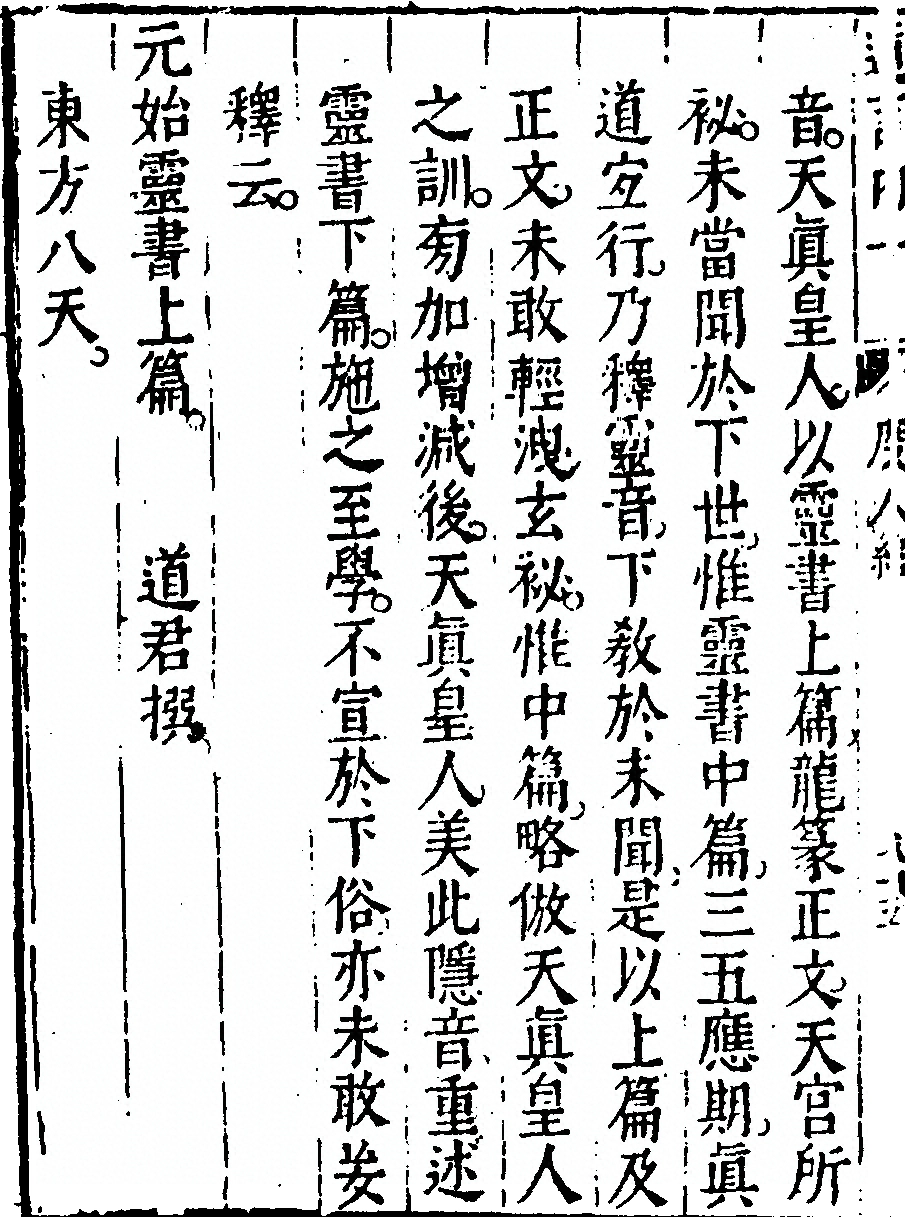 音。天眞皇人、以靈書上篇龍篆正文、天宮所
祕。未當聞於下世、惟靈書中篇、三五應期、眞
道宜行、乃釋靈音、下敎於未聞、是以上篇及
正文、未敢輕洩玄祕。惟中篇、略倣天眞皇人
之訓。有加增減後。天眞皇人、美此隱音、重述
靈書下篇。施之至學。不宣於下俗、亦未敢妄
釋云。
元始靈書上篇。 道君撰
東方八天、